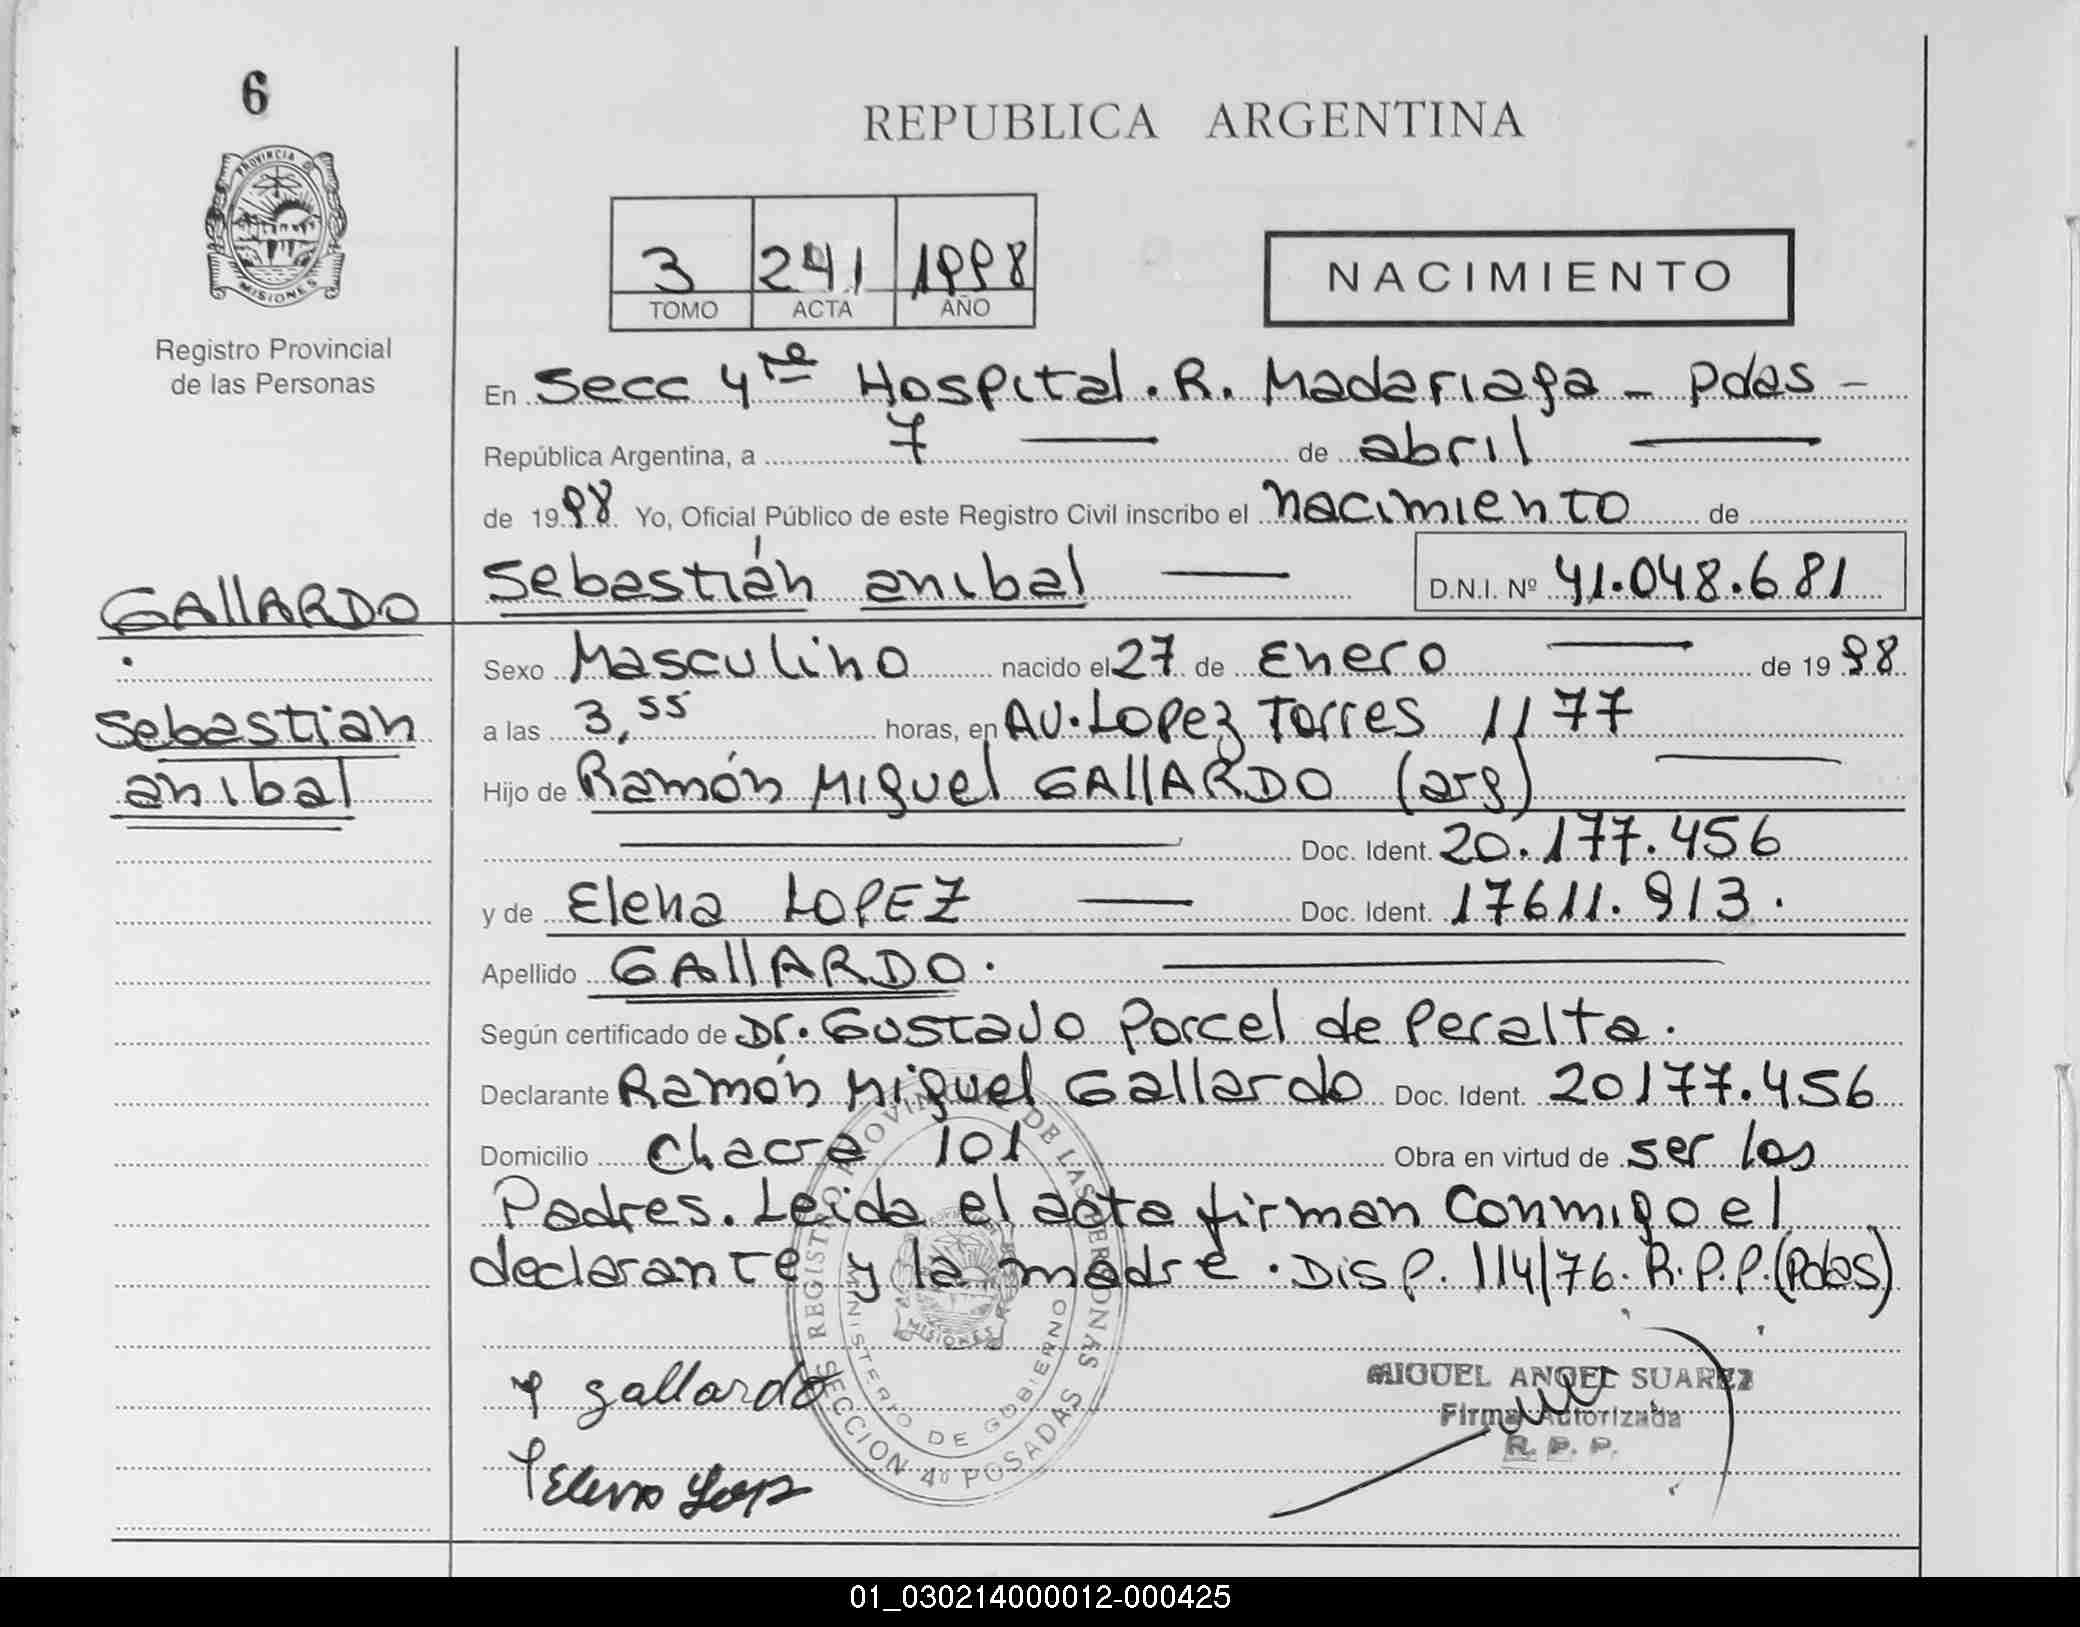 6
REPUBLICA ARGENTINA
PROVINCIA DE
MISIONES
Registro Provincial
de las Personas
3 241 1998
TOMO ACTA AÑO
NACIMIENTO
En Secc 4ta Hospital. R. Madariaga - Pdas -
República Argentina, a 7 de abril
de 1998 Yo, Oficial Público de este Registro Civil inscribo el nacimiento de
Sebastián anibal D.N.I. Nº 41.048.681
GAllARDO
Sebastian
anibal
Sexo Masculino nacido el 27 de Enero de 1998
a las 3,55 horas, en AV. Lopez Torres 1177
Hijo de Ramón Miguel GAllARDO (arg)
Doc. Ident. 20.177.456
y de Elena LOPEZ Doc. Ident. 17611.913.
Apellido GAllARDO.
Según certificado de Dr. Gustavo Porcel de Peralta.
Declarante Ramón Miguel Gallardo Doc. Ident. 20177.456
Domicilio Chacra 101 Obra en virtud de ser los
Padres. Leida el acta firman Conmigo el
declarante y la madre. Disp. 114/76. R.P.P. (Pdas)
REGISTRO PROVINCIAL DE LAS PERSONAS
MINISTERIO DE GOBIERNO
MISIONES
SECCION 4º POSADAS
gallardo
Elena Lopez
MIGUEL ANGEL SUAREZ
Firma Autorizada
R. P. P.
01_030214000012-000425